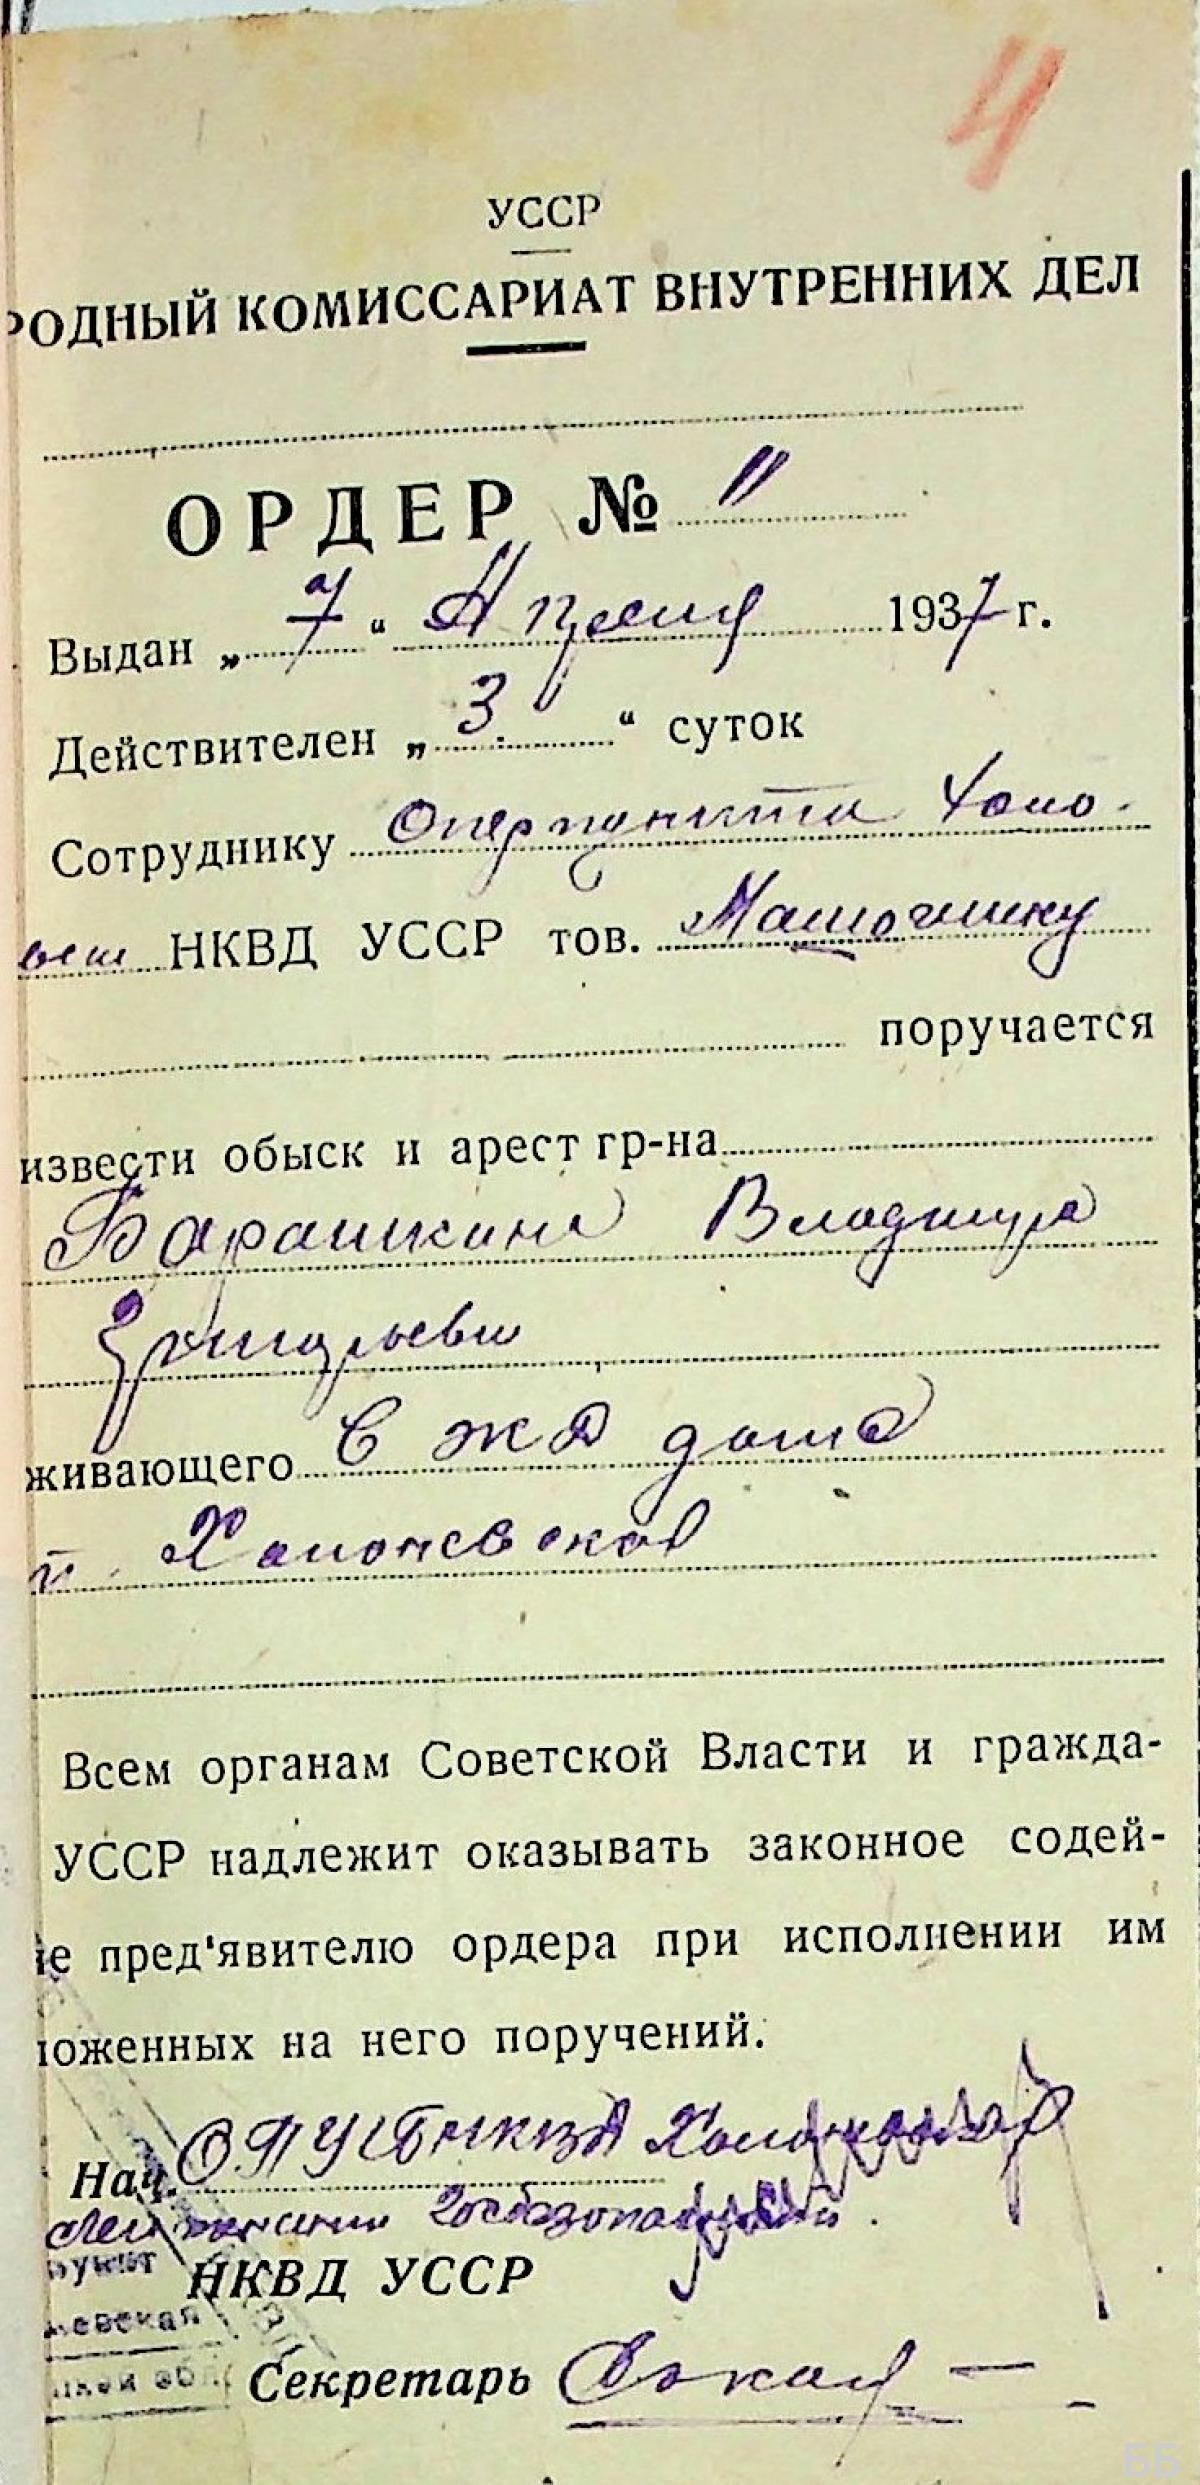 4
УССР
РОДНЫЙ КОМИССАРИАТ ВНУТРЕННИХ ДЕЛ
ОРДЕР № 11
Выдан „7“ Апреля 1937 г.
Действителен „3“ суток
Сотруднику Оперпункта
НКВД УССР тов.
поручается
извести обыск и арест гр-на
Барашкина Владимира
Григорьевич
живающего в ЖД доме
Хапоневская
Всем органам Советской Власти и гражда-
УССР надлежит оказывать законное содей-
ие пред'явителю ордера при исполнении им
ложенных на него поручений.
Нач.
Госбезопасности.
НКВД УССР
Секретарь
ББ